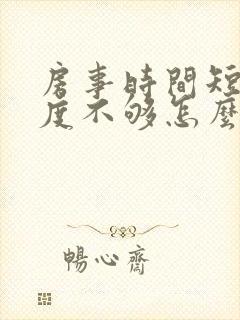 房事時間短
度不够怎麽
暢心齋